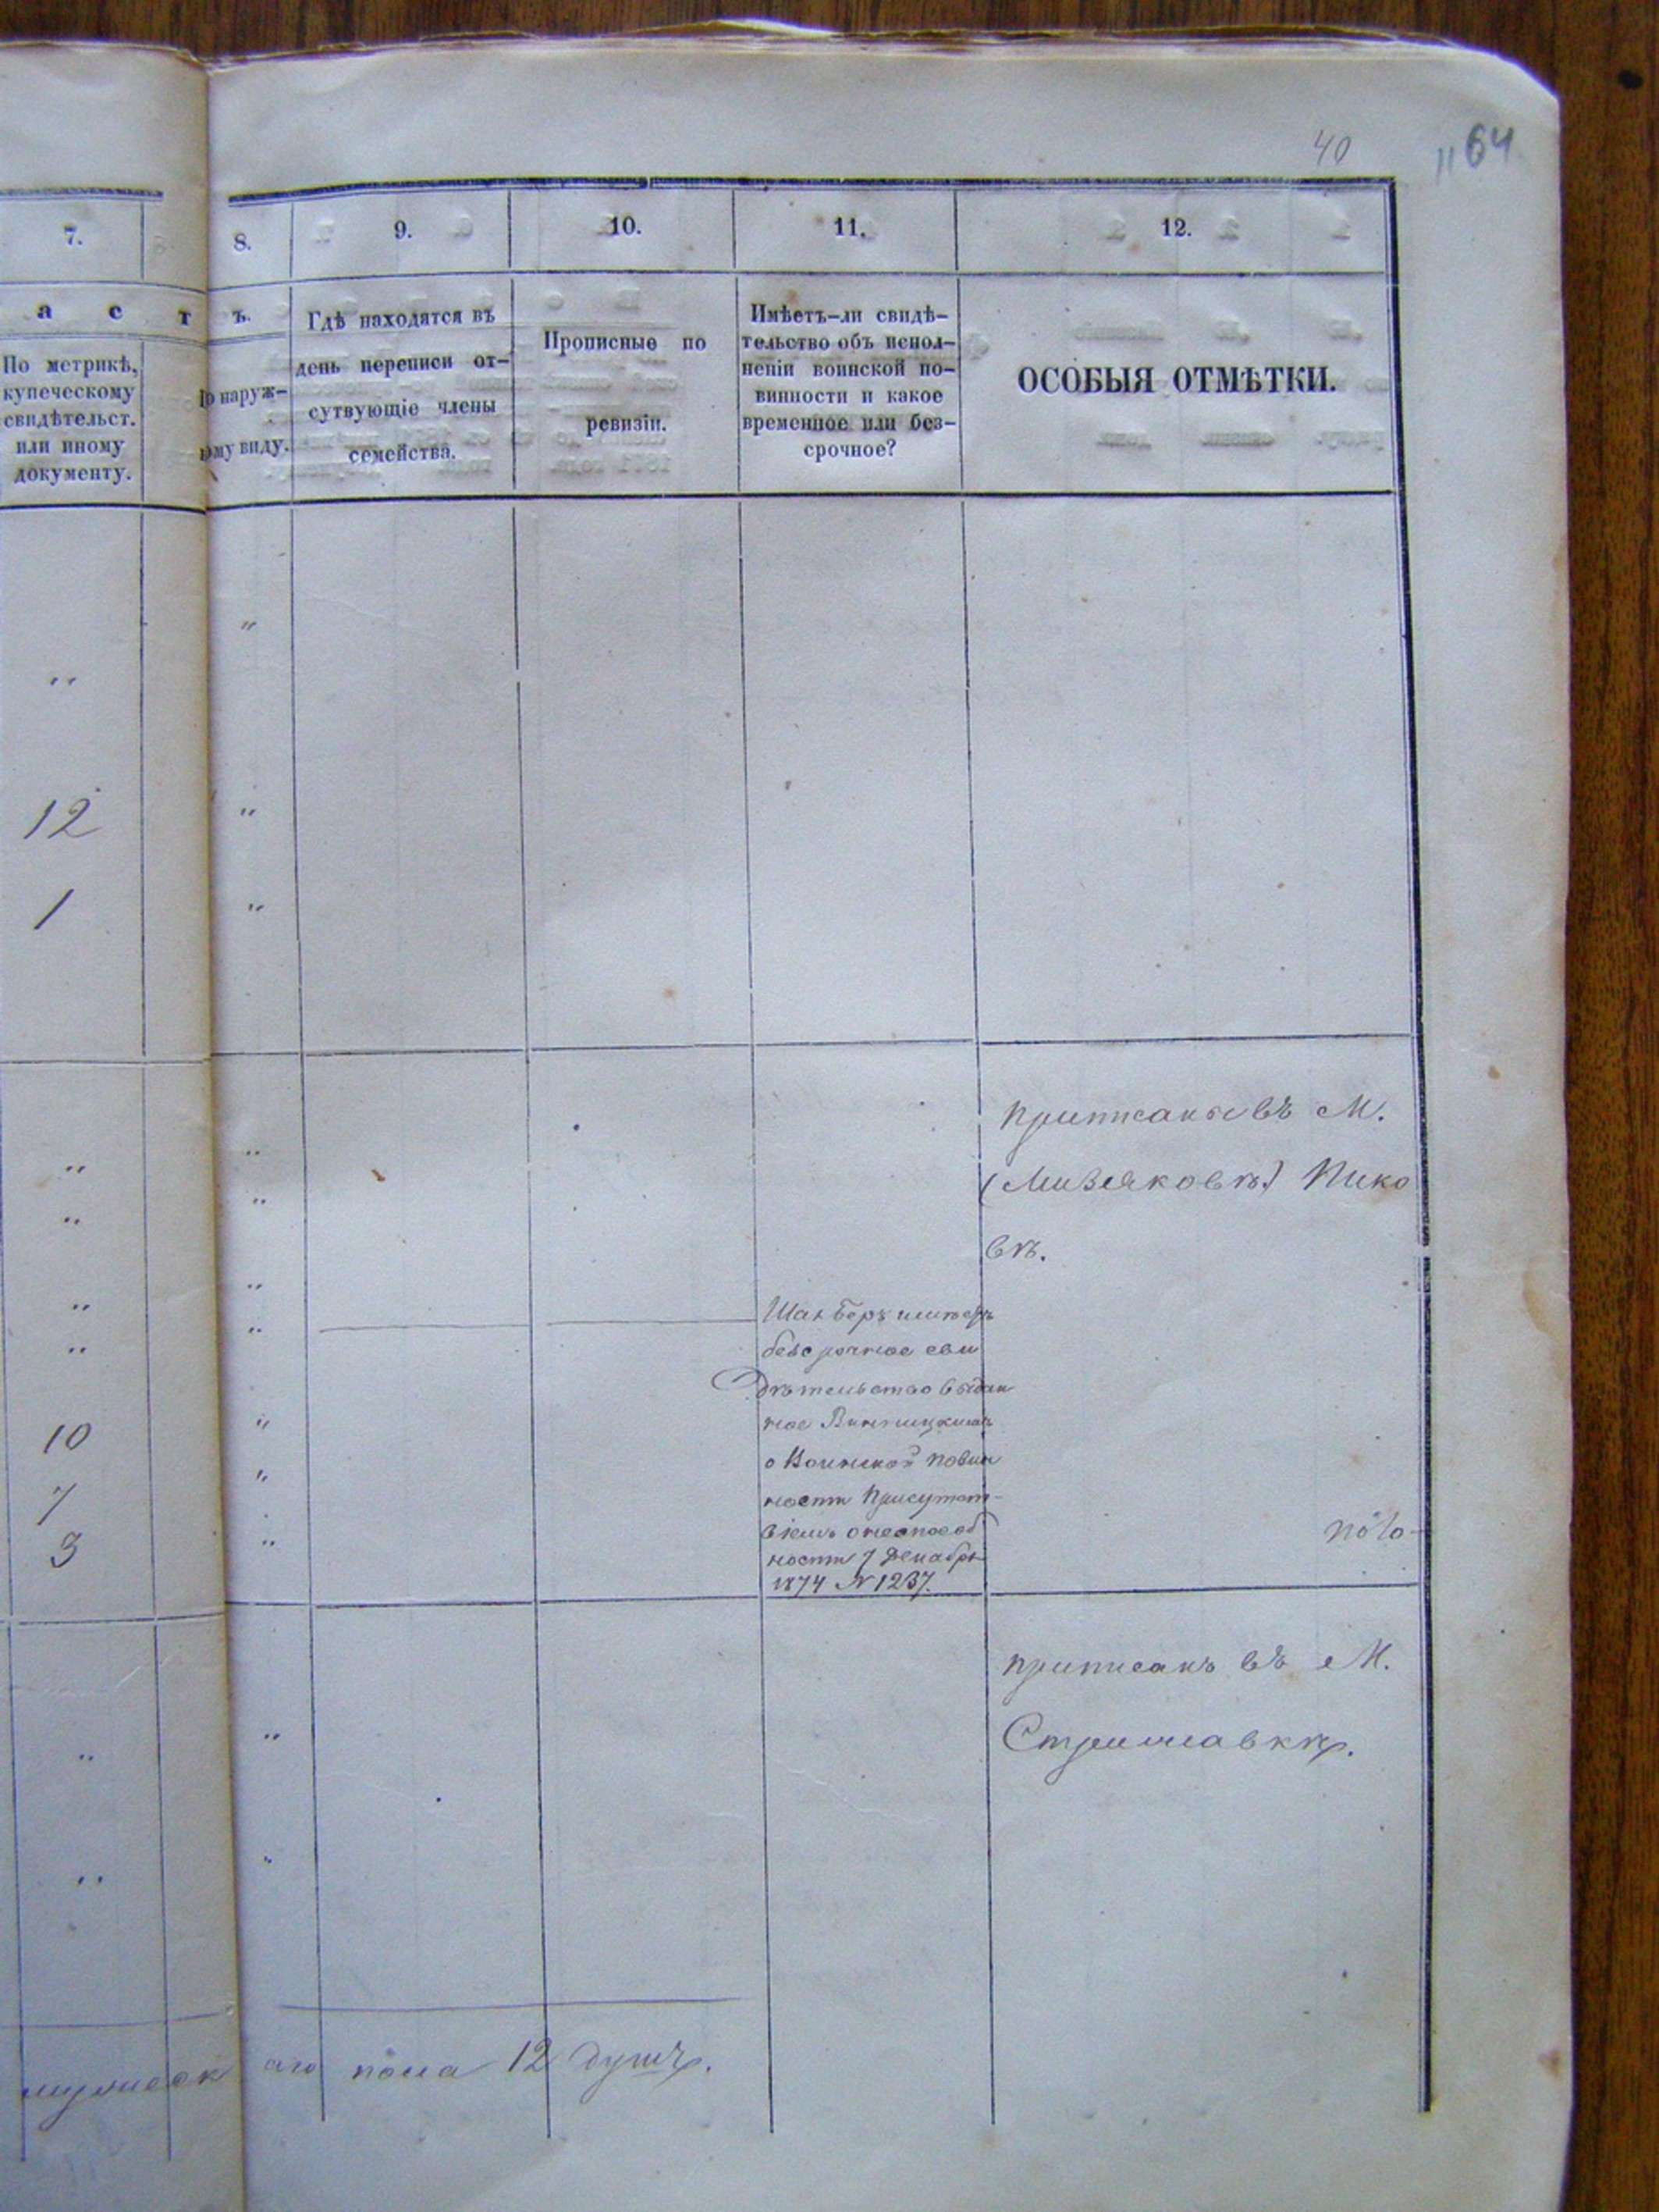 40
64
7.
8.
9.
10.
11.
12.
а с т ъ.
По метрикѣ,
купеческому
свидѣтельст.
или иному
документу.
По наруж-
ному виду.
Гдѣ находятся въ
день переписи от-
сутвующіе члены
семейства.
Прописные по
ревизіи.
Имѣетъ-ли свидѣ-
тельство объ испол-
неніи воинской по-
винности и какое
временное или без-
срочное?
ОСОБЫЯ ОТМѢТКИ.
"
"
12 "
1 "
приписаны въ М.
(Мизяковѣ) Пико
вѣ.
" "
" "
" "
" "
10 "
7 "
3 "
имѣетъ
безсрочное сви
дѣтельство выдан
ное Винницкимъ
о Воинской повин
ности Присутст-
віемъ о неспособ
ности 7 Декабря
1874 № 1237.
приписанъ въ М.
Стрижавкѣ.
" "
" "
мужескаго пола 12 душъ.